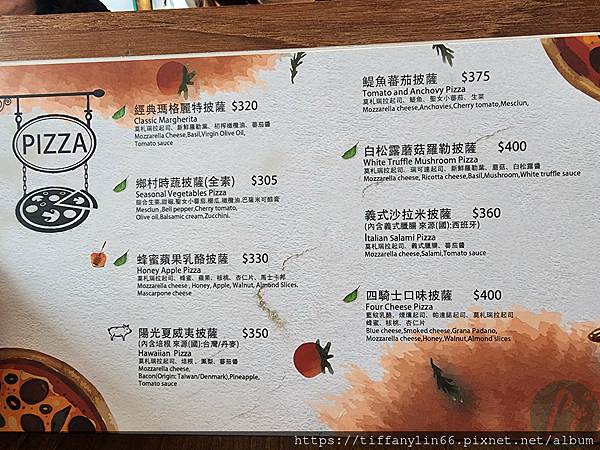 PIZZA
經典瑪格麗特披薩 $320
Classic Margherita
莫札瑞拉起司、新鮮羅勒葉、初榨橄欖油、蕃茄醬
Mozzarella Cheese,Basil,Virgin Olive Oil,
Tomato sauce
鄉村時蔬披薩(全素) $305
Seasonal Vegetables Pizza
綜合生菜,甜椒,聖女小蕃茄,櫛瓜,橄欖油,巴薩米可醋膏
Mesclun ,Bell pepper,Cherry tomato,
Olive oil,Balsamic cream,Zucchini.
蜂蜜蘋果乳酪披薩 $330
Honey Apple Pizza
莫札瑞拉起司、蜂蜜、蘋果、核桃、杏仁片、馬士卡邦
Mozzarella cheese , Honey, Apple, Walnut, Almond Slices.
Mascarpone cheese
陽光夏威夷披薩 $350
(內含培根 來源(國):台灣/丹麥)
Hawaiian Pizza
莫札瑞拉起司、培根、鳳梨、蕃茄醬
Mozzarella cheese,
Bacon(Origin:Taiwan/Denmark),Pineapple,
Tomato sauce
鯷魚蕃茄披薩 $375
Tomato and Anchovy Pizza
莫札瑞拉起司、鯷魚、聖女小蕃茄、生菜
Mozzarella cheese,Anchovies,Cherry tomato,Mesclun,
白松露蘑菇羅勒披薩 $400
White Truffle Mushroom Pizza
莫札瑞拉起司、瑞可達起司、新鮮羅勒葉、蘑菇、白松露醬
Mozzarella cheese, Ricotta cheese,Basil,Mushroom,White truffle sauce
義式沙拉米披薩 $360
(內含義式臘腸 來源(國):西班牙)
Italian Salami Pizza
莫札瑞拉起司、義式臘腸、蕃茄醬
Mozzarella cheese,Salami,Tomato sauce
四騎士口味披薩 $400
Four Cheese Pizza
藍紋乳酪、煙燻起司、帕達諾起司、莫札瑞拉起司
蜂蜜、核桃、杏仁片
Blue cheese,Smoked cheese,Grana Padano,
Mozzarella cheese,Honey,Walnut,Almond slices
https://tiffanylin66.pixnet.net/album